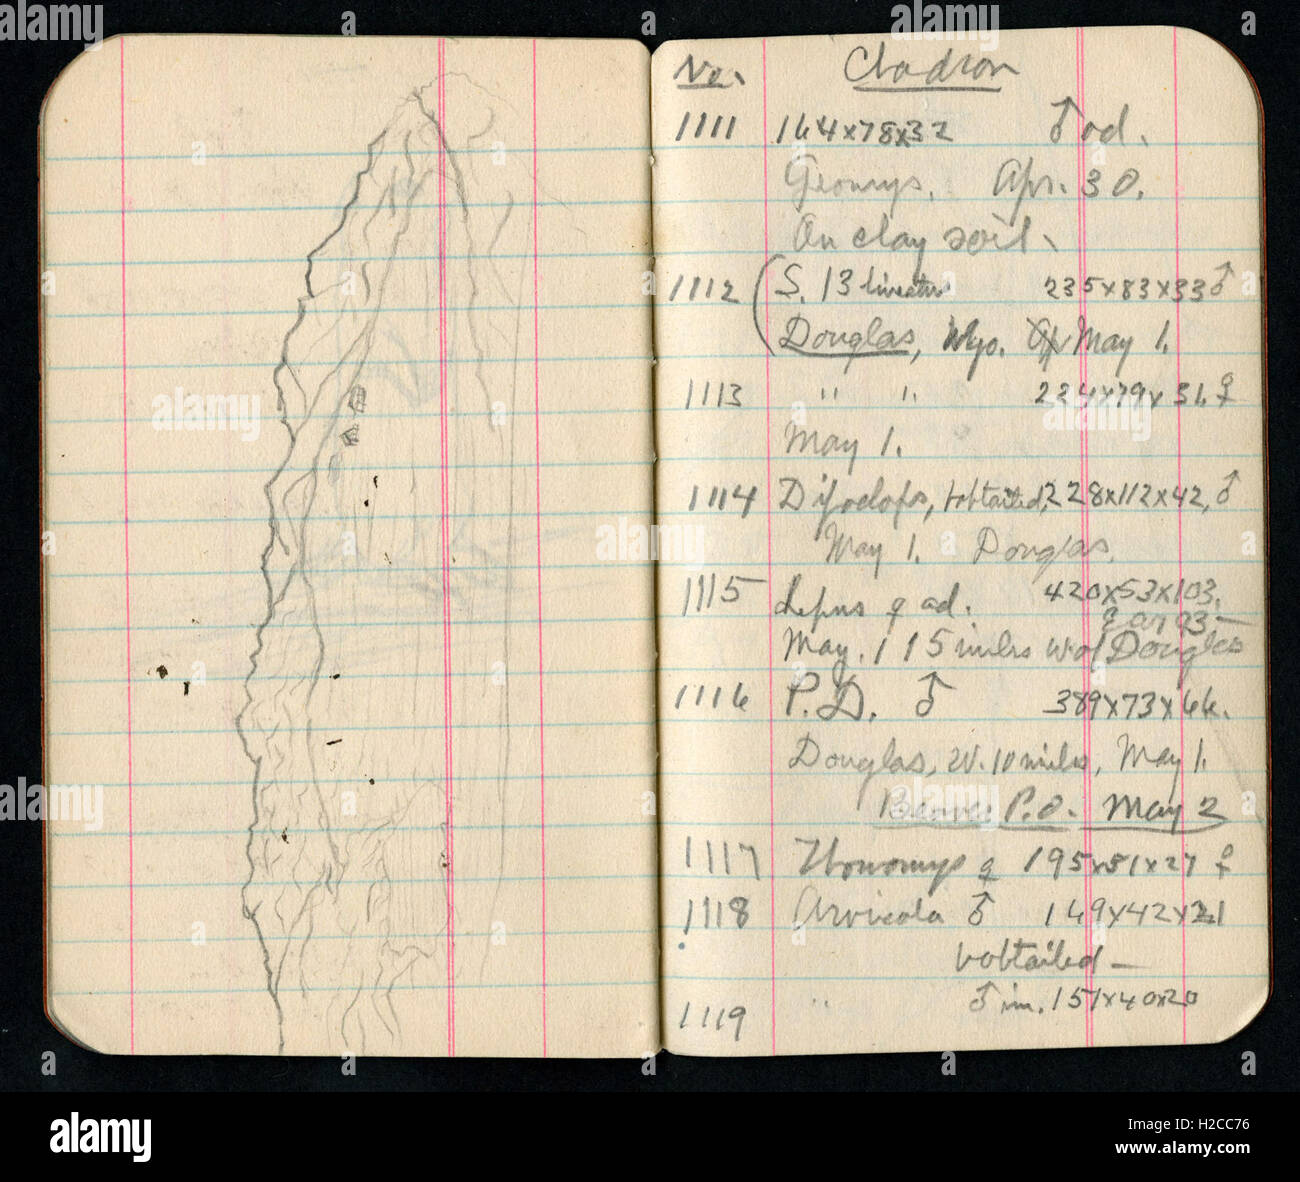 No. Chadron
1111 164x78x32 ♂ad.
Geomys. Apr. 30.
On clay soil.
1112 (S. 13 lineatus 235x83x33♂
Douglas, Wyo. Apr May 1.
1113 " " 224x79x31. ♀
May 1.
1114 Dipodops, bobtailed, 228x112x42, ♂
May 1. Douglas.
1115 Lepus ♀ ad. 420x53x103.
Ear 93—
May. 1 15 miles W of Douglas
1116 P.D. ♂ 389x73x64.
Douglas, W. 10 miles, May 1.
Beaver P.O. May 2
1117 Thomomys ♀ 195x51x27 ♀
1118 Arvicola ♂ 149x42x21
bobtailed—
1119 " ♂ im. 151x40x20
alamy
a
alamy
www.alamy.com
H2CC76